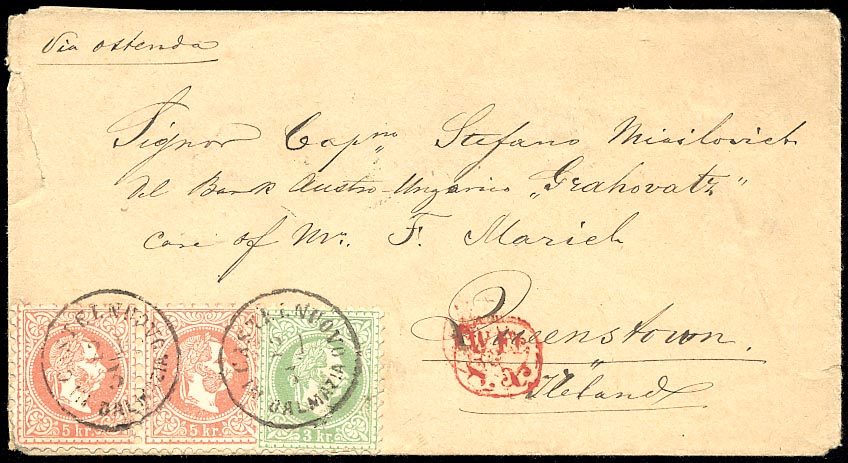 Via Ostenda
Signor Cap.no Stefano Misilovich
del Bark Austro-Ungarico „Grahovatz"
care of Mr. F. Marich
Queenstown.
Ireland
CASTELNUOVO
IN DALMAZIA
CASTELNUOVO
IN DALMAZIA
5 kr.
5 kr.
3 kr.